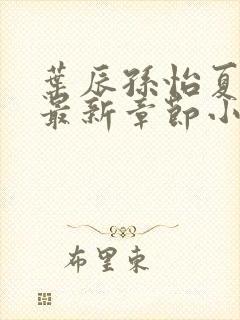 葉辰孫怡夏
最新章節小
布里東